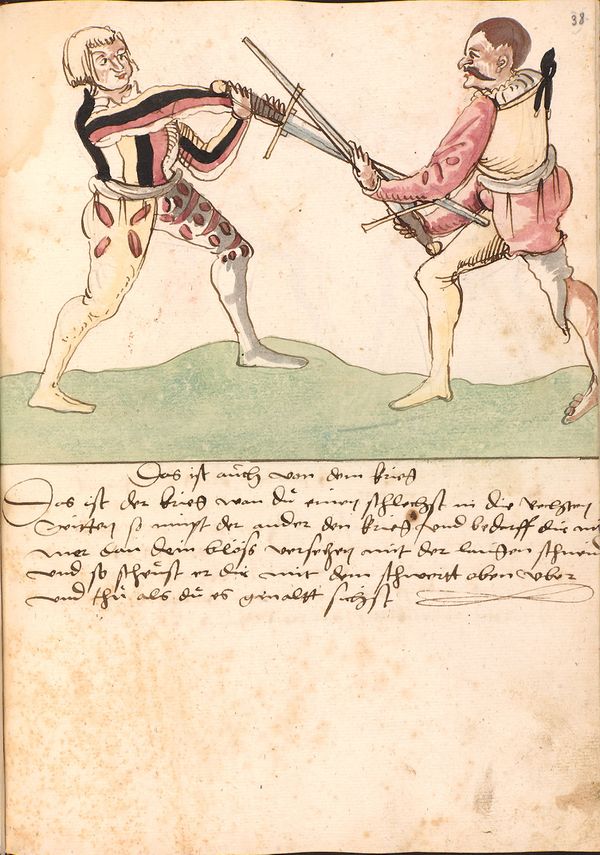 38
Das ist auch von dem krieg
Das ist der krieg wan du einen schlechst in die rechten
seitten so nimpt der ander den krieg und bedarff die nit
mer dan dein bloss versechen mit der langen schneid
und so scheust er dir mit dem schwertt oben uber
und thu als du es gmaltt sichst